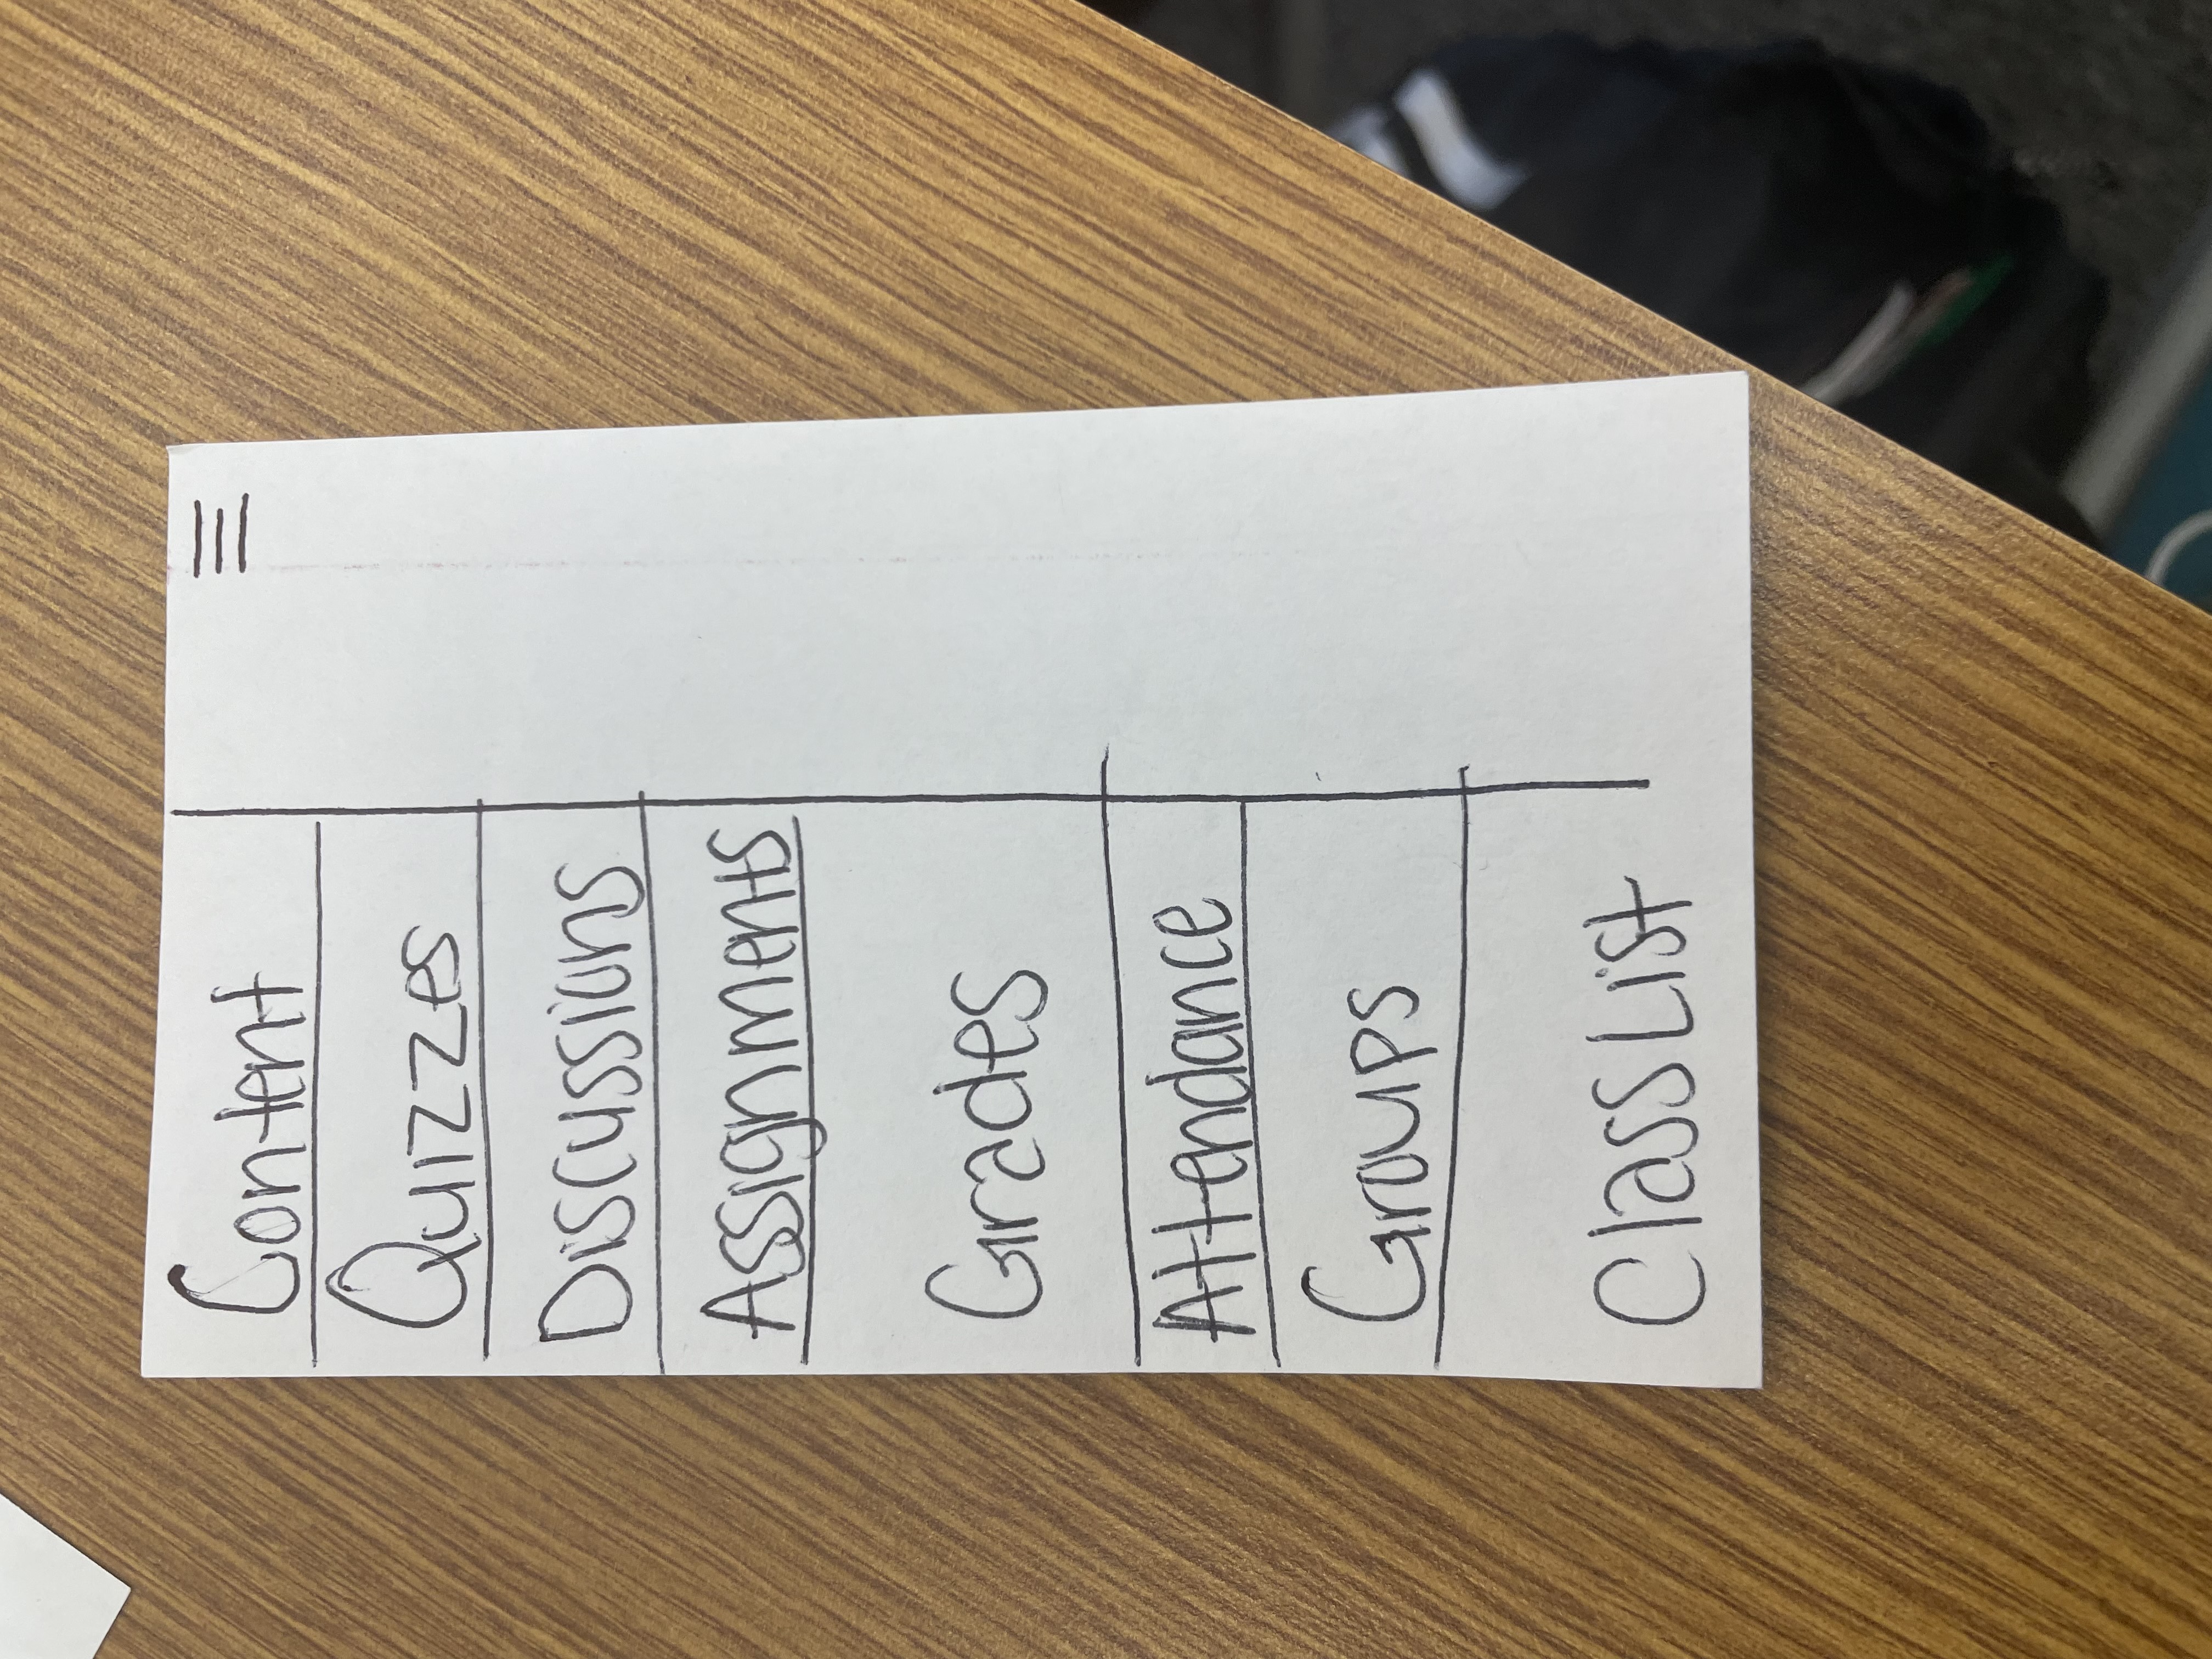 Content
Quizzes
Discussions
Assignments
Grades
Attendance
Groups
Class List